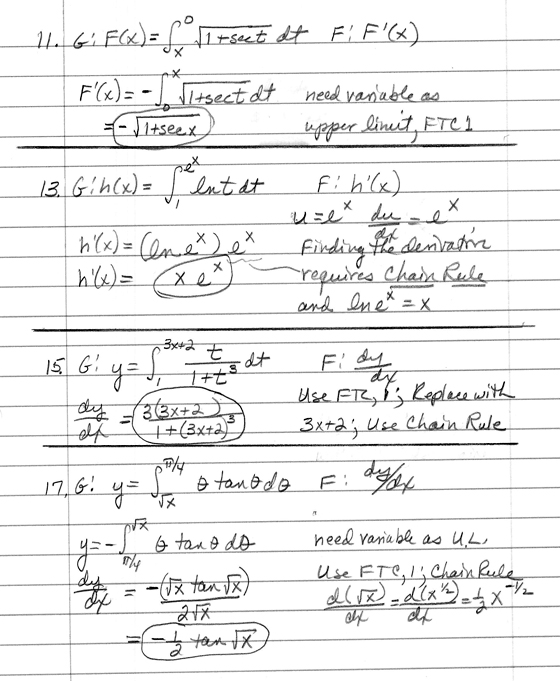 11. G: F(x) = ∫_x^0 √(1+sec t) dt F: F'(x)
F'(x) = -∫_0^x √(1+sec t) dt need variable as
= -√(1+sec x) upper limit, FTC 1
13. G: h(x) = ∫_1^(e^x) ln t dt F: h'(x)
u = e^x du/dx = e^x
h'(x) = (ln e^x) e^x Finding the derivative
h'(x) = x e^x requires Chain Rule
and ln e^x = x
15. G: y = ∫_1^(3x+2) t/(1+t^3) dt F: dy/dx
Use FTC, 1; Replace with
dy/dx = 3(3x+2)/(1+(3x+2)^3) 3x+2; Use Chain Rule
17. G: y = ∫_(√x)^(π/4) θ tan θ dθ F: dy/dx
y = -∫_(π/4)^(√x) θ tan θ dθ need variable as U.L.
Use FTC, 1; Chain Rule
dy/dx = -(√x tan √x)/(2√x) d(√x)/dx = d(x^(1/2))/dx = 1/2 x^(-1/2)
= -1/2 tan √x